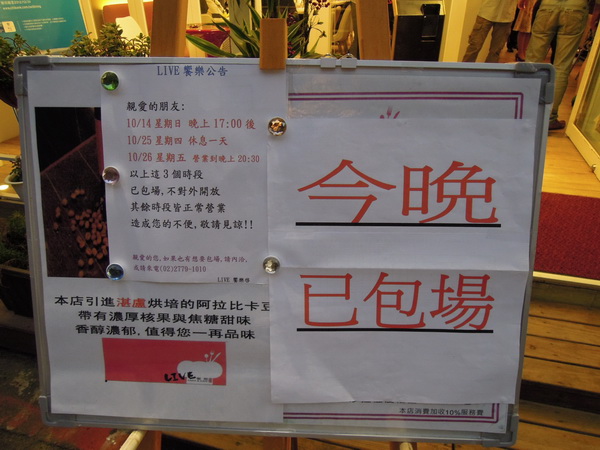 LIVE 饗樂公告
親愛的朋友:
10/14 星期日 晚上 17:00 後
10/25 星期四 休息一天
10/26 星期五 營業到晚上 20:30
以上這3個時段
已包場,不對外開放
其餘時段皆正常營業
造成您的不便,敬請見諒!!
親愛的您,如果也有想要包場,請內洽,
或請來電(02)2779-1010
LIVE 饗樂
今晚
已包場
本店引進湛盧烘培的阿拉比卡豆
帶有濃厚核果與焦糖甜味
香醇濃郁,值得您一再品味
LIVE
本店消費加收10%服務費